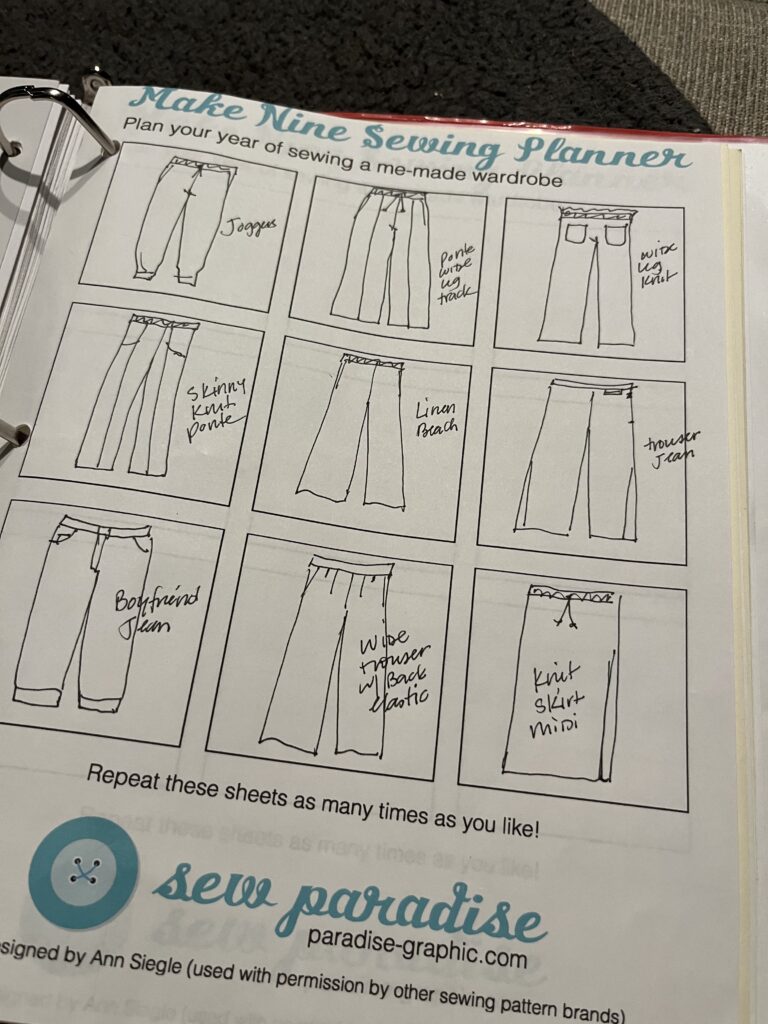 Make Nine Sewing Planner
Plan your year of sewing a me-made wardrobe
Joggers
Ponte
wide
leg
track
wide
leg
knit
Skinny
Knit
ponte
Linen
Beach
trouser
Jean
Boyfriend
Jean
Wide
trouser
w/ Back
elastic
Knit
skirt
midi
Repeat these sheets as many times as you like!
sew paradise
paradise-graphic.com
signed by Ann Siegle (used with permission by other sewing pattern brands)